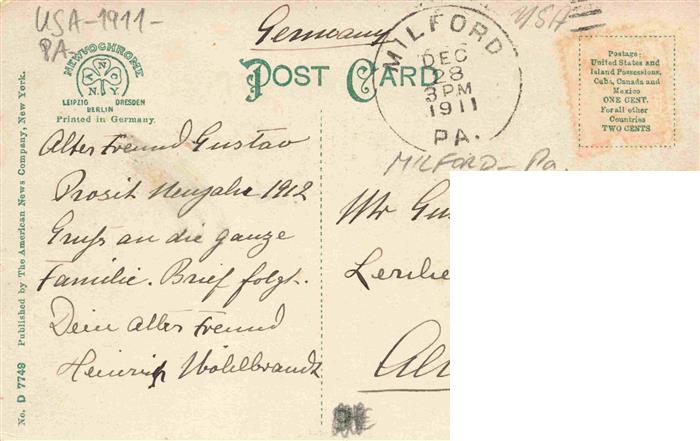 USA-1911-
PA.
Germany
USA
NEWVOCHROME
A N Co
N Y
LEIPZIG DRESDEN
BERLIN
Printed in Germany.
POST CARD
MILFORD
DEC
28
3 PM
1911
PA.
Postage:
United States and
Island Possessions,
Cuba, Canada and
Mexico
ONE CENT.
For all other
Countries
TWO CENTS
MILFORD - Pa.
Alter Freund Gustav
Prosit Neujahr 1912
Gruß an die ganze
Familie. Brief folgt.
Dein alter Freund
Heinrich Wöhlbrandt
Mr Gus
No. D 7749 Published by The American News Company, New York.